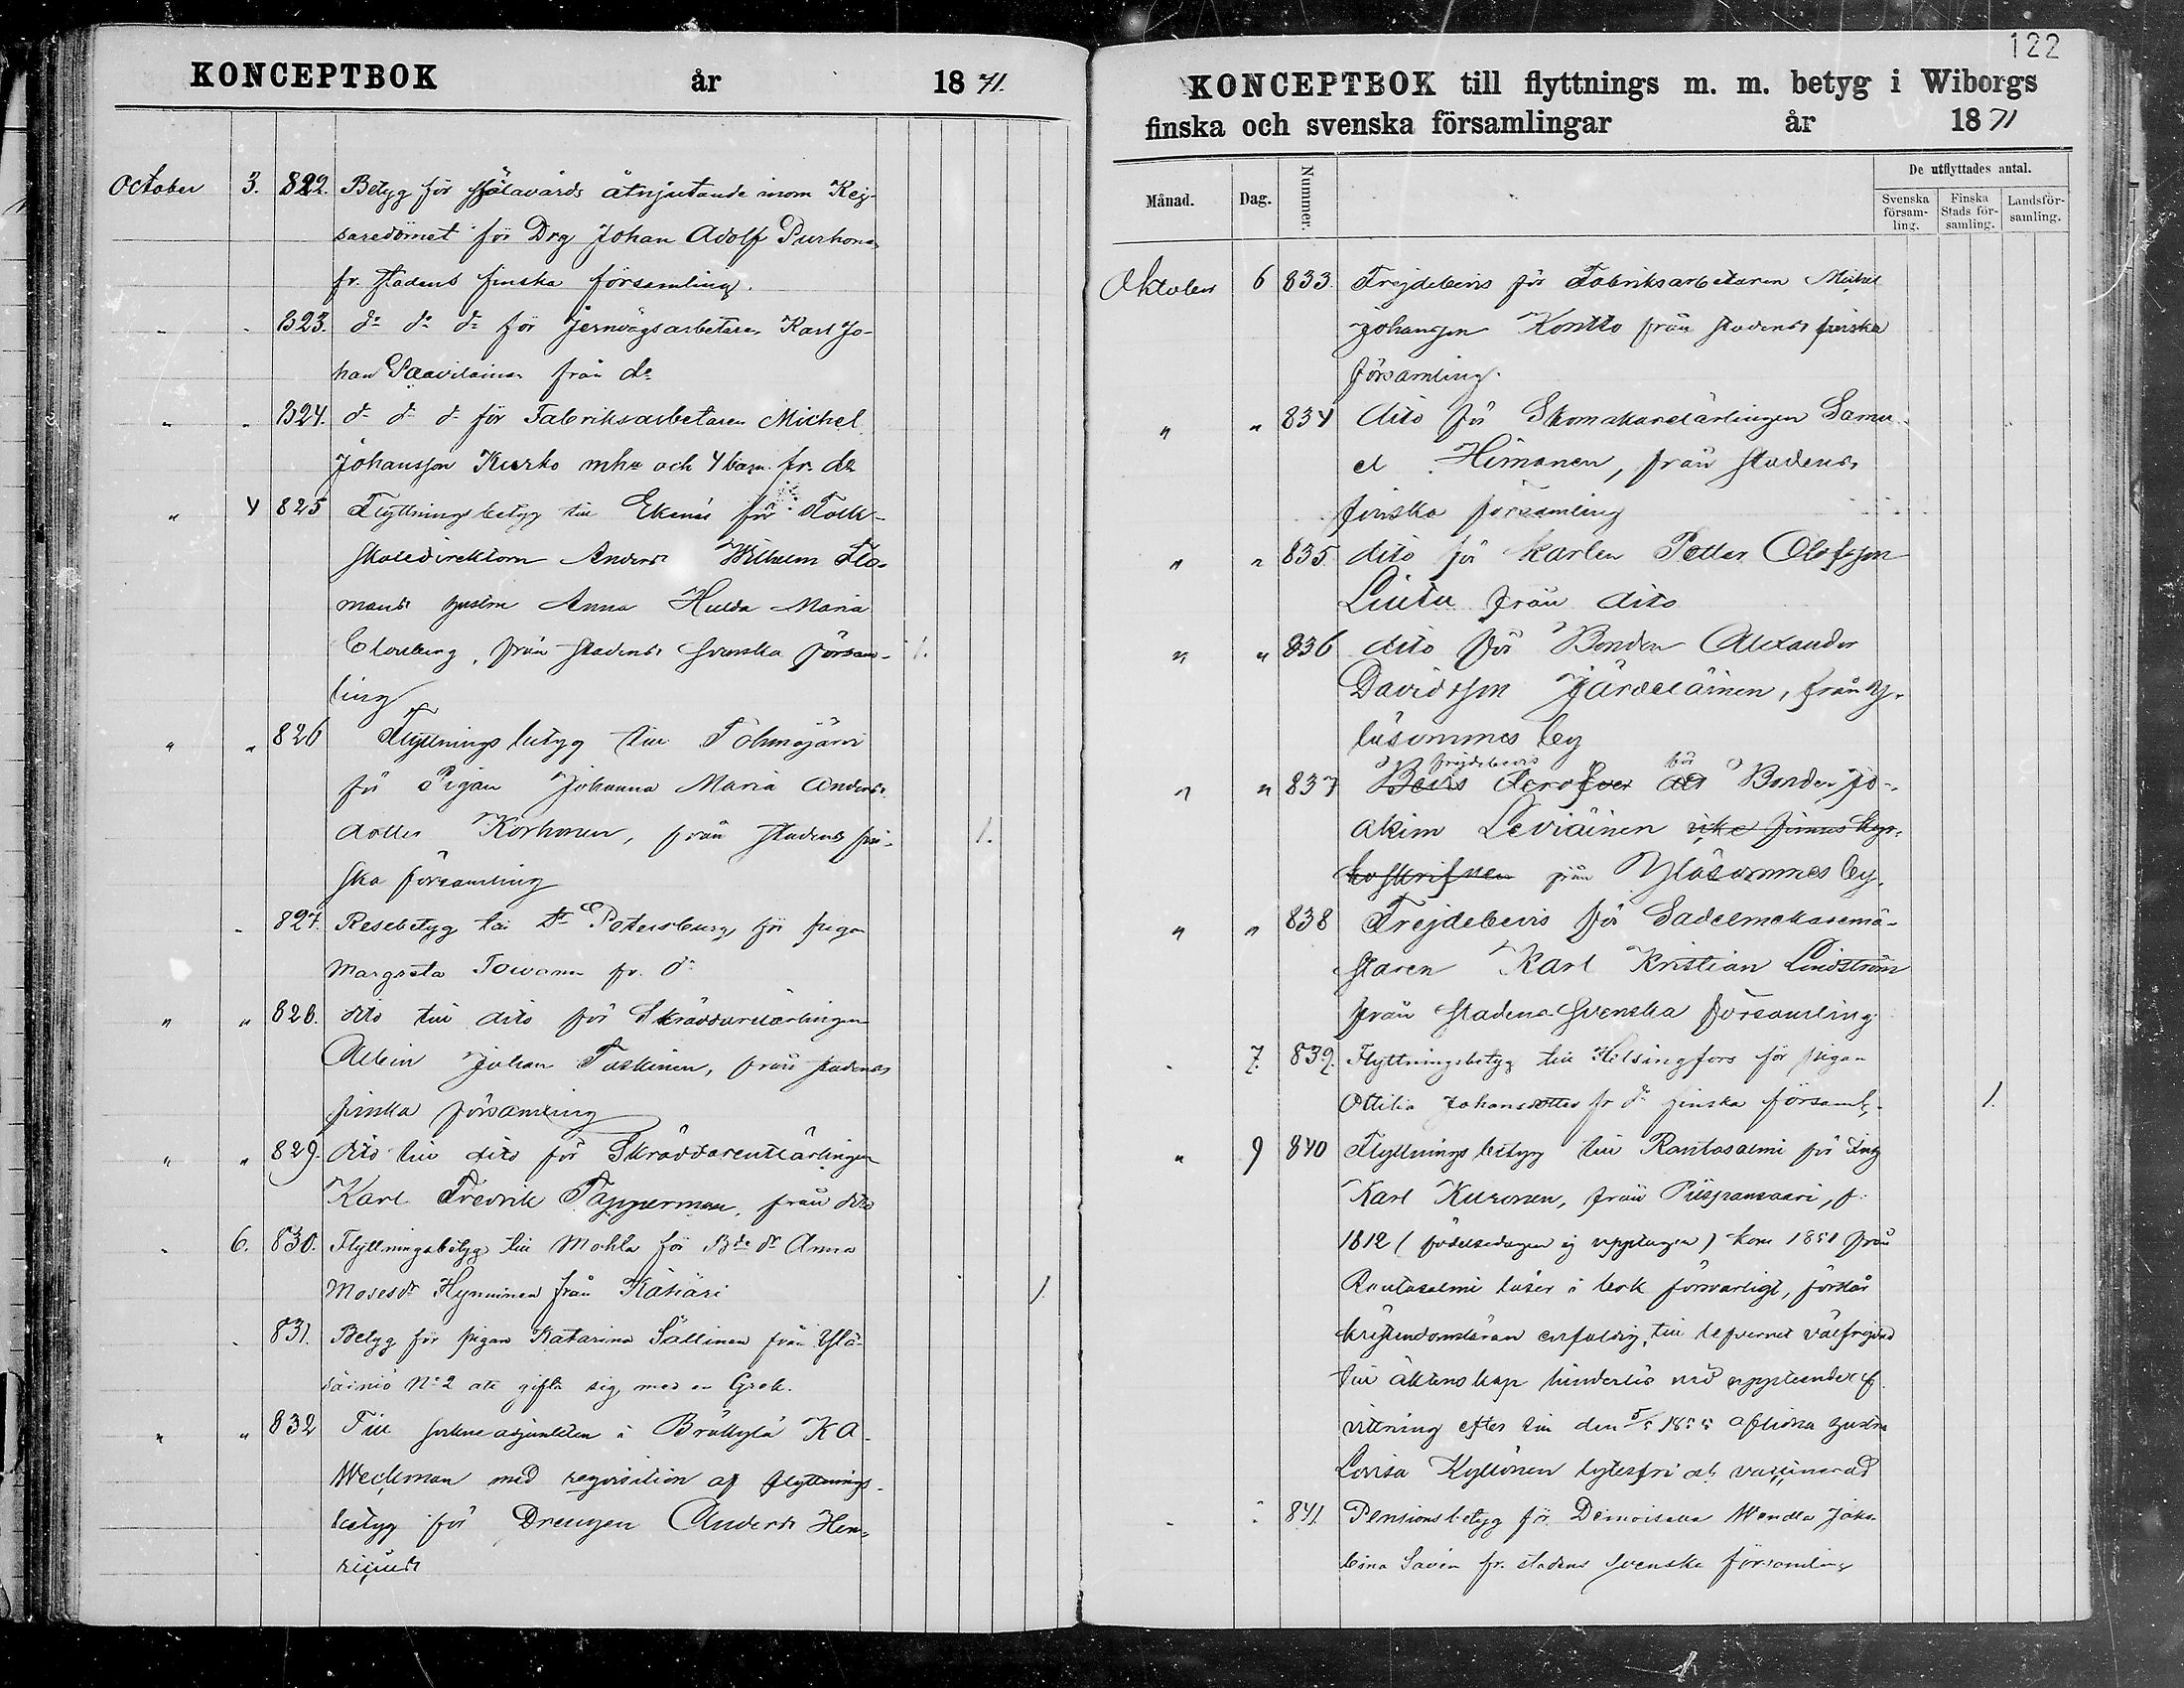 KONCEPTBOK år 1871.
October 3. 822. Betyg för själavårds åtnjutande inom Kej-
saredömet för Drg Johan Adolf Purhone
fr. stadens finska församling.
" " 823. do do do för Jernvägsarbetaren Karl Jo-
han Paavilainen från do
" " 824. do do do för Fabriksarbetaren Michel
Johansson Kurko mhu och 4 barn fr. do
" 4 825 Flyttningsbetyg till Ekenäs för Folk-
skoledirektorn Anders Wilhelm Flo-
mans hustru Anna Hulda Maria
från stadens Svenska försam- 1.
ling
" " 826 Flyttningsbetyg till Tohmajärvi
för Pigan Johanna Maria Anders
dotter Korhonen, från stadens fin- 1.
ska församling
" 827. Resebetyg till St Petersburg för pigan
Margreta Toivonen fr. do
" " 828. dito till dito för Skräddarelärlingen
Albin Johan Taskinen, från stadens
finska församling
" " 829. dito till dito för Skräddarentlärlingen
Karl Fredrik Papperman, från dito
" 6. 830. Flyttningsbetyg till Mohla för Bde dr Anna
Mosesdr Hynninen från Kähäri 1
" 831. Betyg för pigan Katarina Sällinen från Ylä-
säiniö No 2 att gifta sig med en Grek.
" " 832 Till sockneadjunkten i Bräkylä K A
Weckman med reqvisition af flyttnings-
betyg för Drengen Anders Hen-
122
KONCEPTBOK till flyttnings m. m. betyg i Wiborgs
finska och svenska församlingar år 1871
Månad. Dag. Nummer. De utflyttades antal.
Svenska församling. Finska Stads församling. Landsförsamling.
Oktober 6 833. Frejdebevis för Fabriksarbetaren Michel
Johansson Kontto från stadens finska
församling.
" " 834 dito för Skomakarelärlingen Samu-
el Himanen, från stadens
finska församling
" " 835. dito för karlen Petter Olofsson
Liutu från dito
" " 836 dito för Bonden Alexander
Davidsson Järveläinen, från Y-
läsommes by
frejdebevis för
" " 837 Bevis derofver att Bonden Jo-
akim Leviäinen icke finnes kyr-
koskrifven från Yläsommes by.
" " 838 Frejdebevis för Sadelmakaremä-
staren Karl Kristian Lindström
från Stadens Svenska församling
" 7. 839. Flyttningsbetyg till Helsingfors för pigan
Ottilia Johansdotter fr do finska församl. 1.
" 9 840 Flyttningsbetyg till Rantasalmi för Inh
Karl Kuronen, från Piispansaari, f.
1812 (födelsedagen ej upptagen) kom 1851 från
Rantasalmi läser i bok försvarligt, förstår
kristendomsläran enfaldig, till lefvernet välfrejdad
till äktenskap hinderlös med uppteende af
vittring efter sin den 5/5 1855 aflidna hustru
Lovisa Kyllönen lytesfri och vaccinerad
" " 841. Pensionsbetyg för Demoisellen Wendla Jako-
bina Savén fr. stadens svenska församling